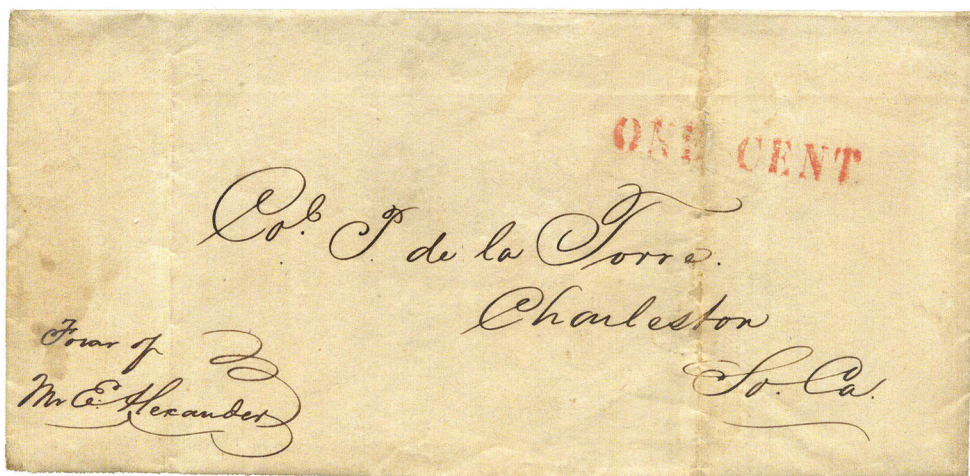 ONE CENT
Col. P. de la Torre.
Charleston
So. Ca.
Favor of
Mr. E. Alexander